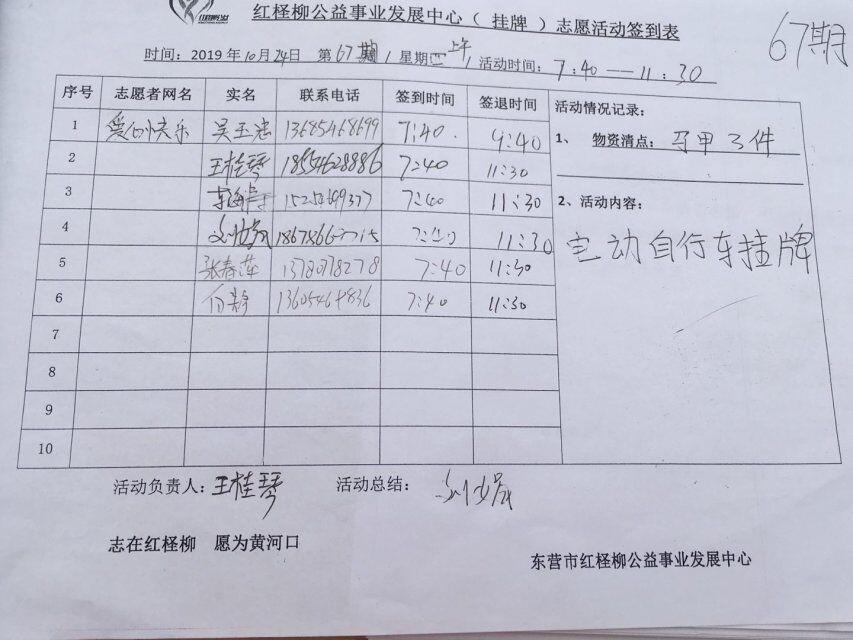 红柽柳公益事业发展中心（ 挂牌 ）志愿活动签到表
67期
时间：2019 年10月24日 第67期 星期四上午 活动时间：7:40—11:30
序号 志愿者网名 实名 联系电话 签到时间 签退时间 活动情况记录：
1 快乐 吴玉 13685468699 7:40 9:40
1、 物资清点：马甲3件
2 王桂琴 18554628886 7:40 11:30
3 7:40 11:30
2、活动内容：
4 7:40 11:30
电动自行车挂牌
5 张春萍 13780778278 7:40 11:30
6 7:40 11:30
7
8
9
10
活动负责人：王桂琴 活动总结：
志在红柽柳 愿为黄河口
东营市红柽柳公益事业发展中心